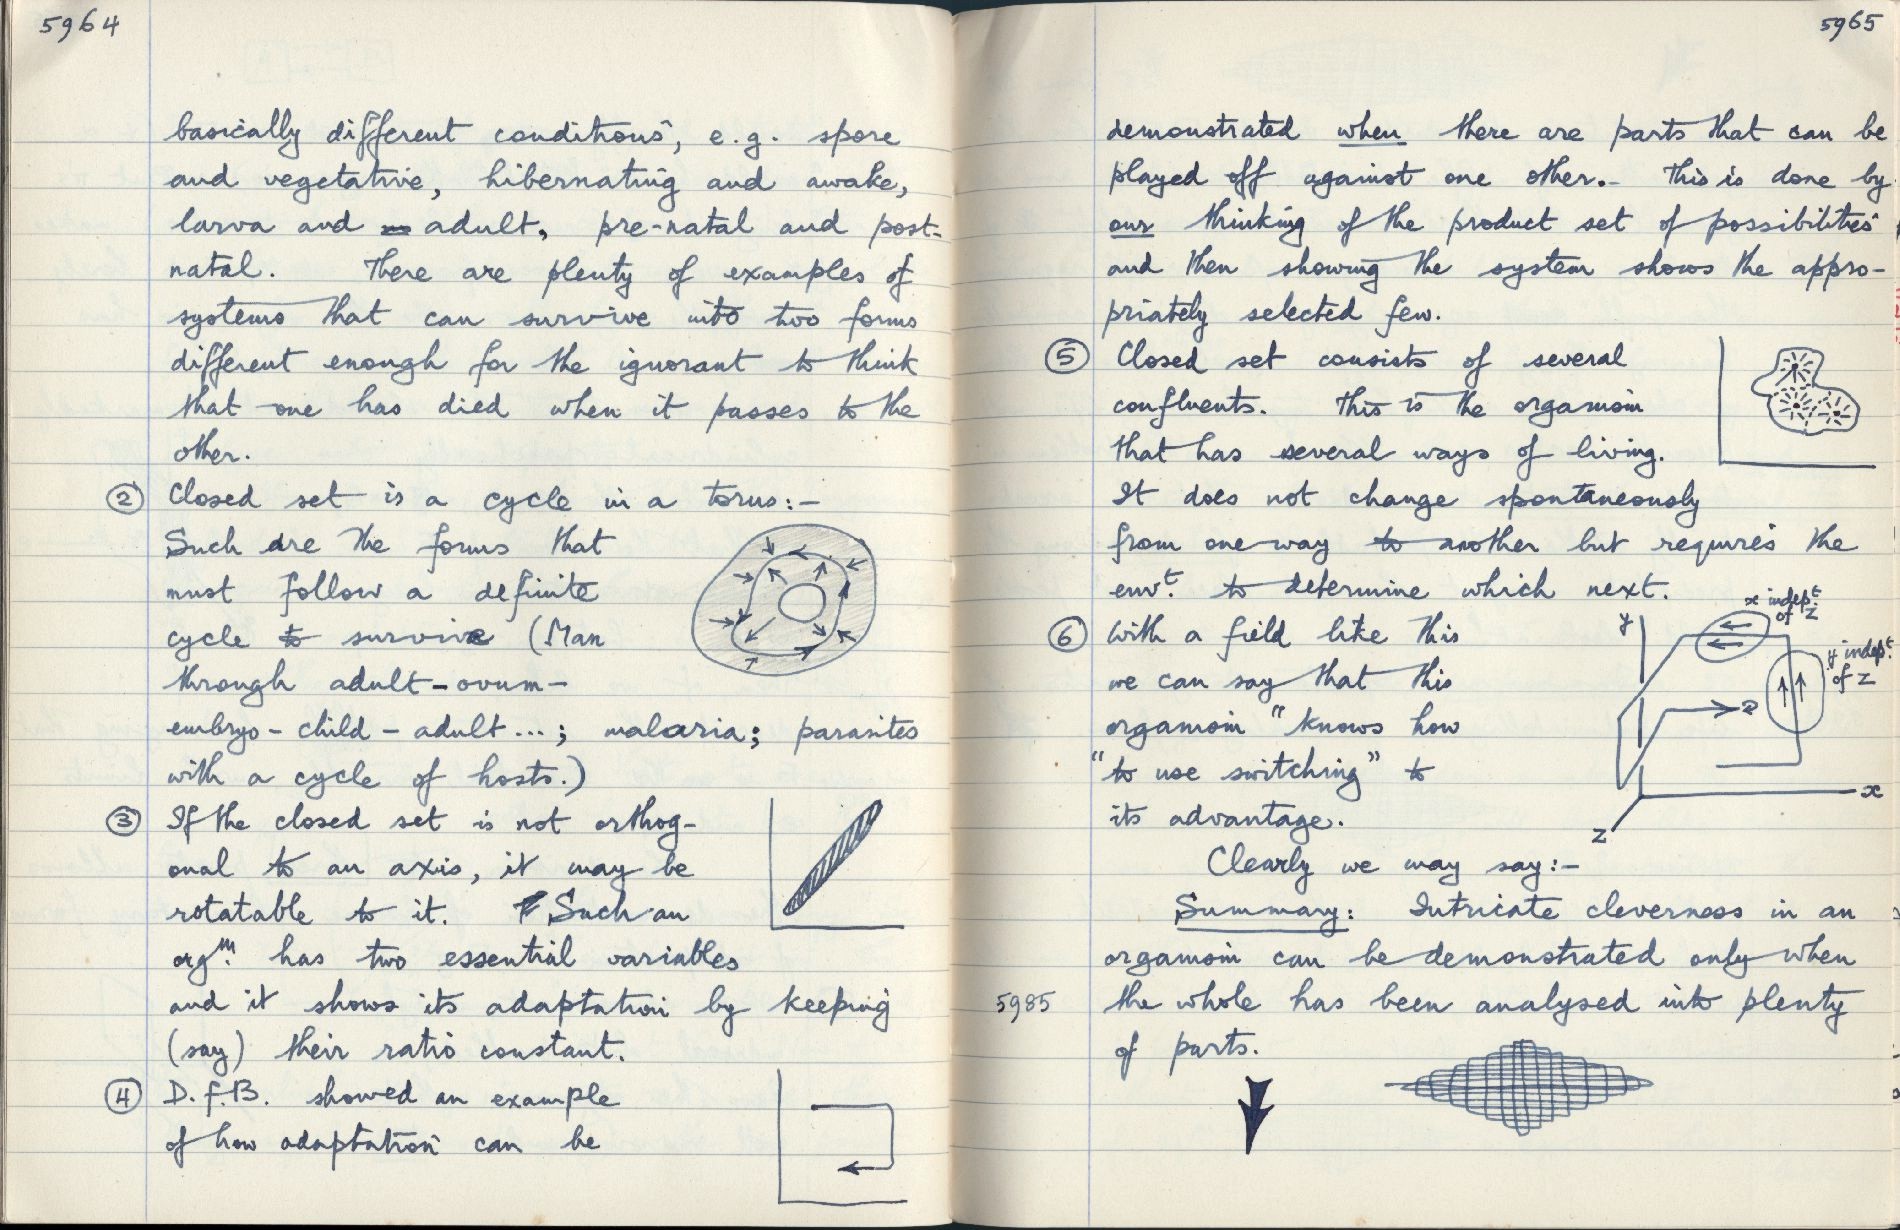 5964
basically different conditions, e.g. spore
and vegetative, hibernating and awake,
larva and adult, pre-natal and post-
natal. There are plenty of examples of
systems that can survive into two forms
different enough for the ignorant to think
that one has died when it passes to the
other.
② Closed set is a cycle in a torus:-
Such are the forms that
must follow a definite
cycle to survive (Man
through adult-ovum-
embryo-child-adult...; malaria; parasites
with a cycle of hosts.)
③ If the closed set is not orthog-
onal to an axis, it may be
rotatable to it. Such an
orgᵐ. has two essential variables
and it shows its adaptation by keeping
(say) their ratio constant.
④ D.f.B. showed an example
of how adaptation can be
5965
demonstrated when there are parts that can be
played off against one other.- This is done by
our thinking of the product set of possibilities
and then showing the system shows the appro-
priately selected few.
⑤ Closed set consists of several
confluents. This is the organism
that has several ways of living.
It does not change spontaneously
from one way to another but requires the
envᵗ. to determine which next.
⑥ With a field like this
we can say that this
organism "knows how
"to use switching" to
its advantage.
y
x indepᵗ.
of z
y indepᵗ.
of z
x
z
Clearly we may say:-
Summary: Intricate cleverness in an
organism can be demonstrated only when
5985 the whole has been analysed into plenty
of parts.